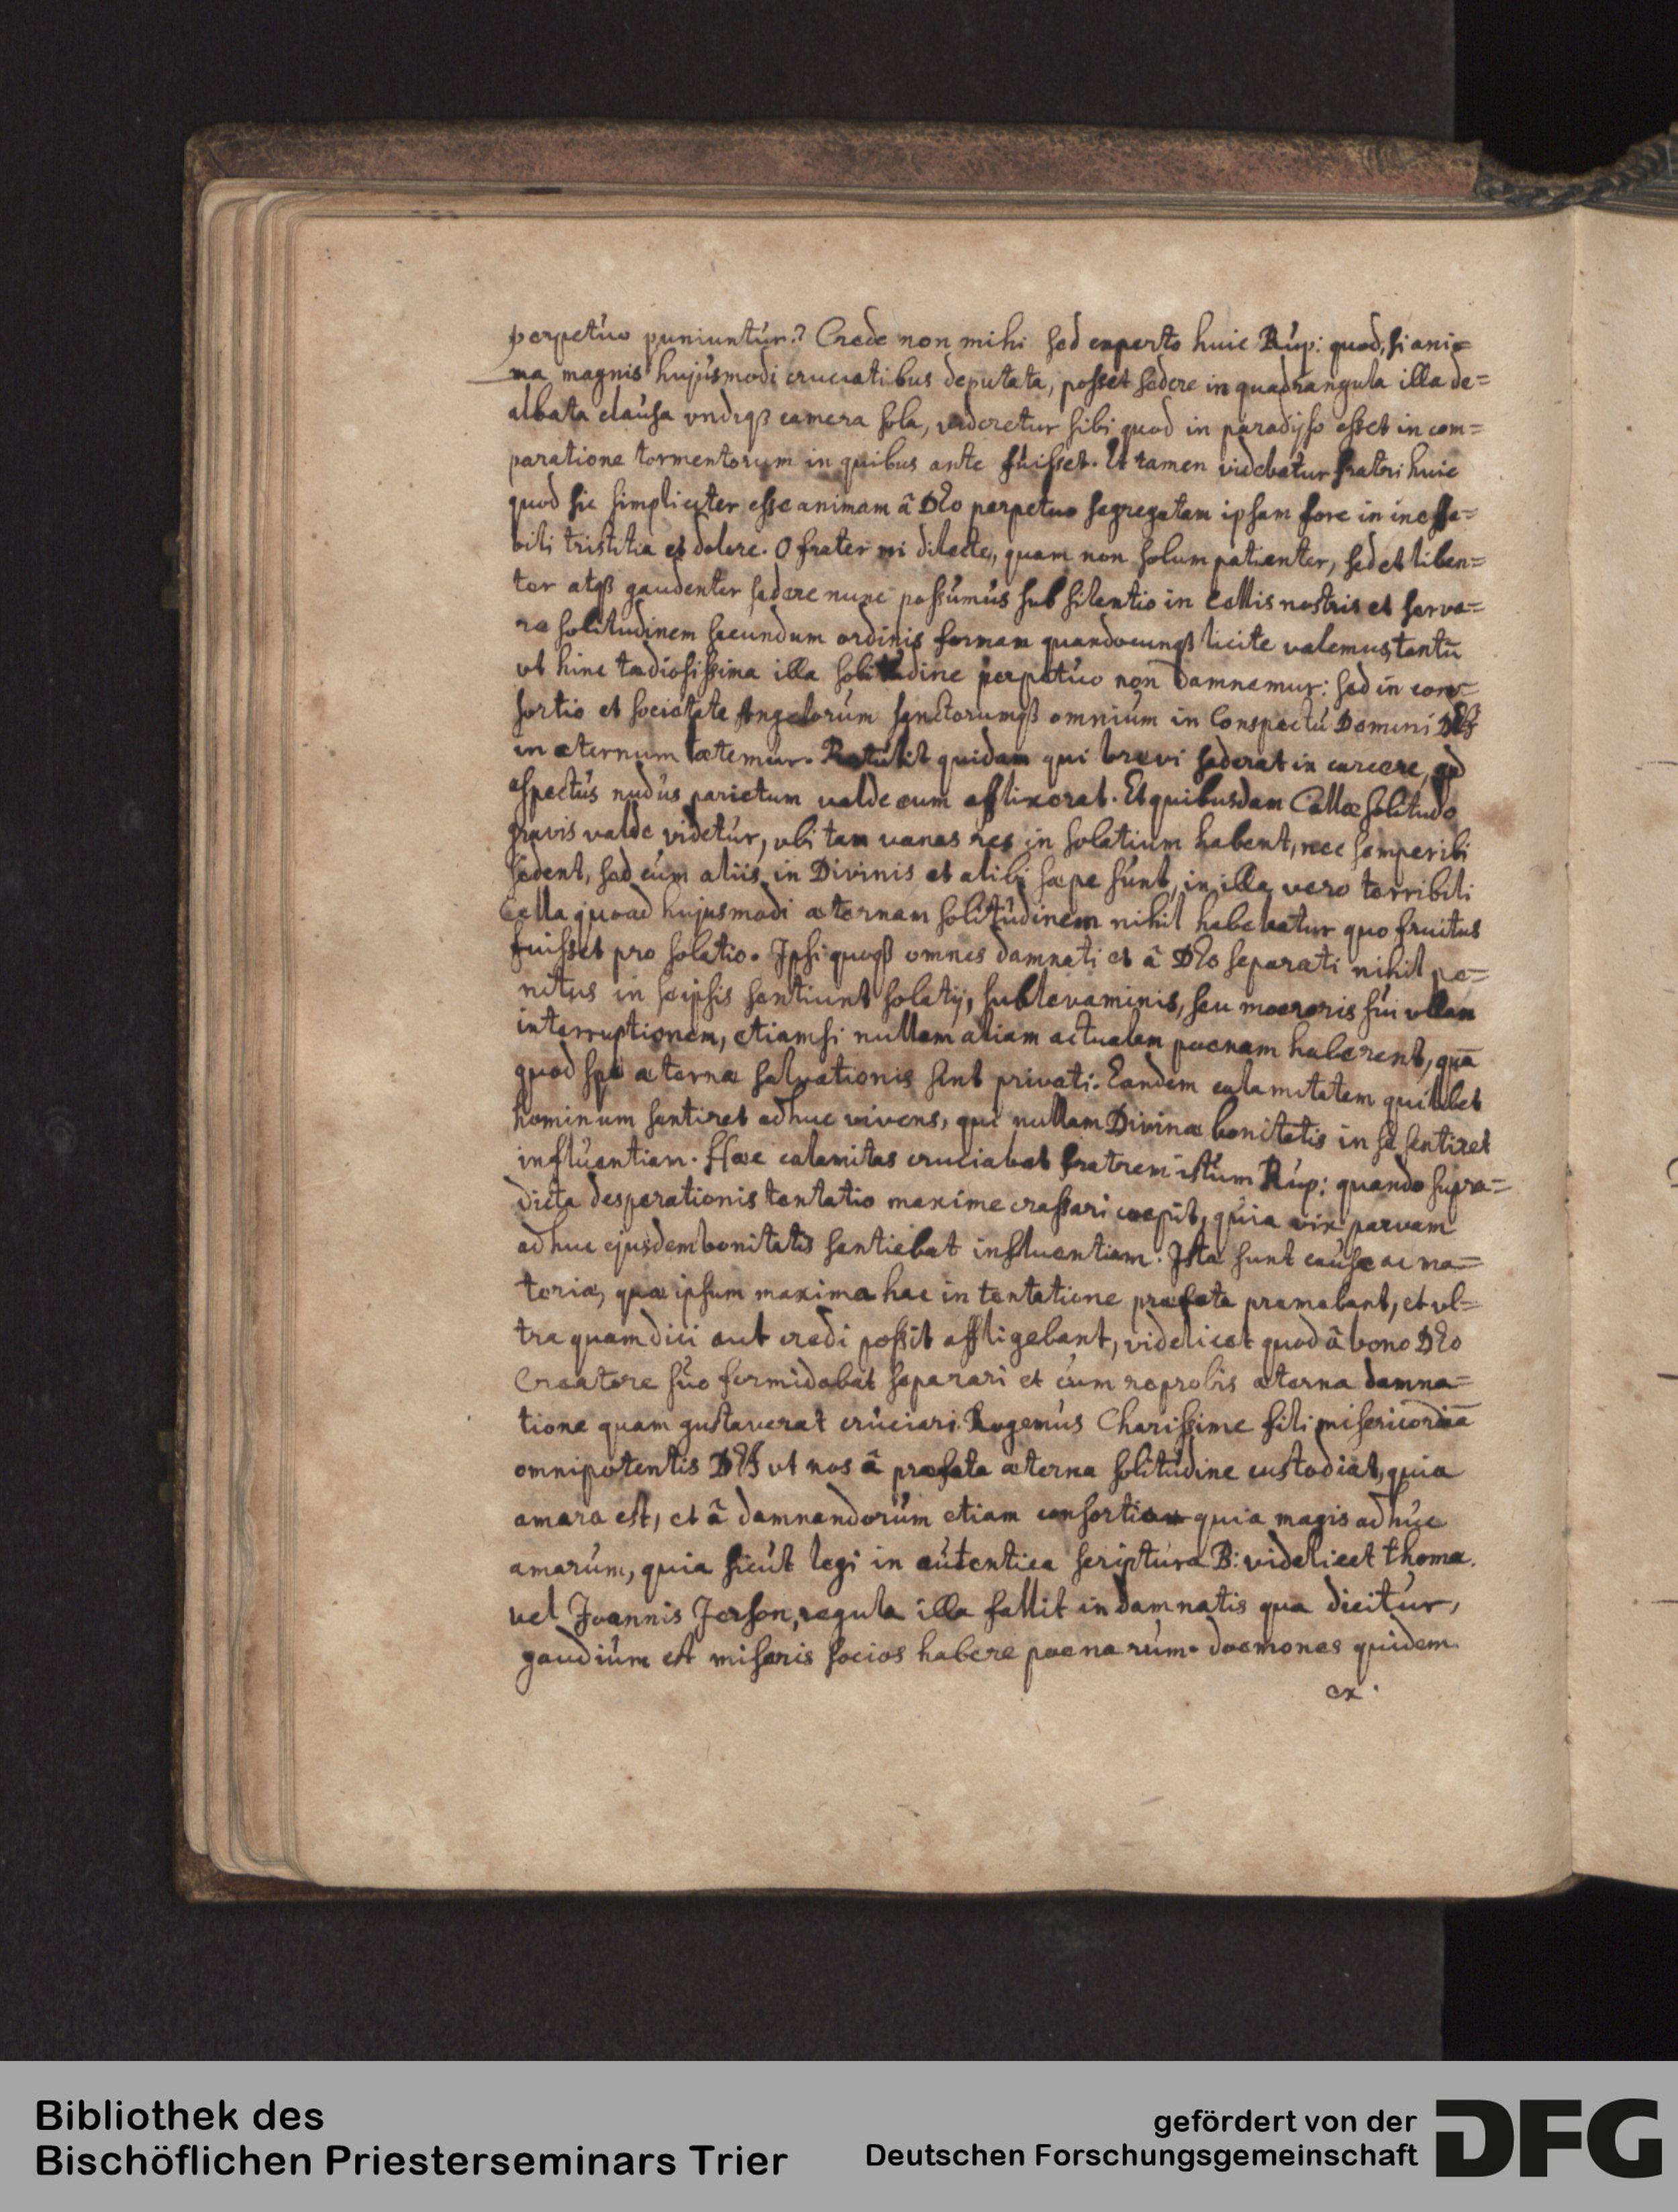 perpetuo puniuntur? Crede non mihi sed experto huic Rup: quod, si ani=
ma magnis hujusmodi cruciatibus deputata, posset sedere in quadrangula illa de=
albata clausa vndiqß camera sola, videretur sibi quod in paradyso esset in com=
paratione tormentorum in quibus ante fuisset. Et tamen videbatur fratri huic
quod sic simpliciter esse animam â DEo perpetuo segregatam ipsam fore in ineffa=
bili tristitia et dolore. O frater mi dilecte, quam non solum patienter, sed et liben=
ter atqß gaudenter sedere nunc possumus sub silentio in Cellis nostris et serva=
re solitudinem secundum ordinis formam quandocunqß licite valemus, tantū
vt hinc tædiosissima illa solitudine perpetuo non damnemur: sed in con=
sortio et societate Angelorum sanctorumqß omnium in Conspectu Domini DEI
in æternum lætemur. Retulit quidam qui brevi sederat in carcere, qd
aspectus nudus parietum valde eum aflixerat. Et quibusdam Cellæ solitudo
gravis valde videtur, vbi tam vanas res in solatium habent, nec semper ibi
sedent, sed cum aliis in Divinis et alibi sæpe sunt, in illa vero terribili
Cella quoad hujusmodi æternam solitudinem nihil habebatur quo fruitus
fuisset pro solatio. Ipsi quoqß omnes damnati et â DEo separati nihil pe=
nitus in seipsis sentiunt solatij, sublevaminis, seu moeroris sui vllam
interruptionem, etiamsi nullam aliam actualem poenam haberent, quā
quod spe æternæ salvationis sint privati. Eandem calamitatem quilibet
hominum sentiret adhuc vivens, qui nullam Divinæ bonitatis in se sentiret
influentiam. Hæc calamitas cruciabat fratrem istum Rup: quando supra=
dicta desperationis tentatio maxime crassari coepit, quia vix parvam
adhuc ejusdem bonitatis sentiebat influentiam. Ista sunt causæ ac ma=
teria, quæ ipsum maxima hac in tentatione præfata premebant, et vl=
tra quam dici aut credi possit affligebant, videlicet quod â bono DEo
Creatore suo formidabat separari et cum reprobis æterna damna=
tione quam gustaverat cruciari. Rogemus Charissime fili misericordiā
omnipotentis DEI vt nos â præfata æterna solitudine custodiat, quia
amara est, et â damnandorum etiam consortio quia magis adhuc
amarum, quia sicut legi in autentica scriptura B: videlicet thomæ.
vel Joannis Jerson, regula illa fallit in damnatis qua dicitur,
gaudium est miseris socios habere poenarum. daemones quidem
ex.
Bibliothek des
Bischöflichen Priesterseminars Trier
gefördert von der
Deutschen Forschungsgemeinschaft
DFG